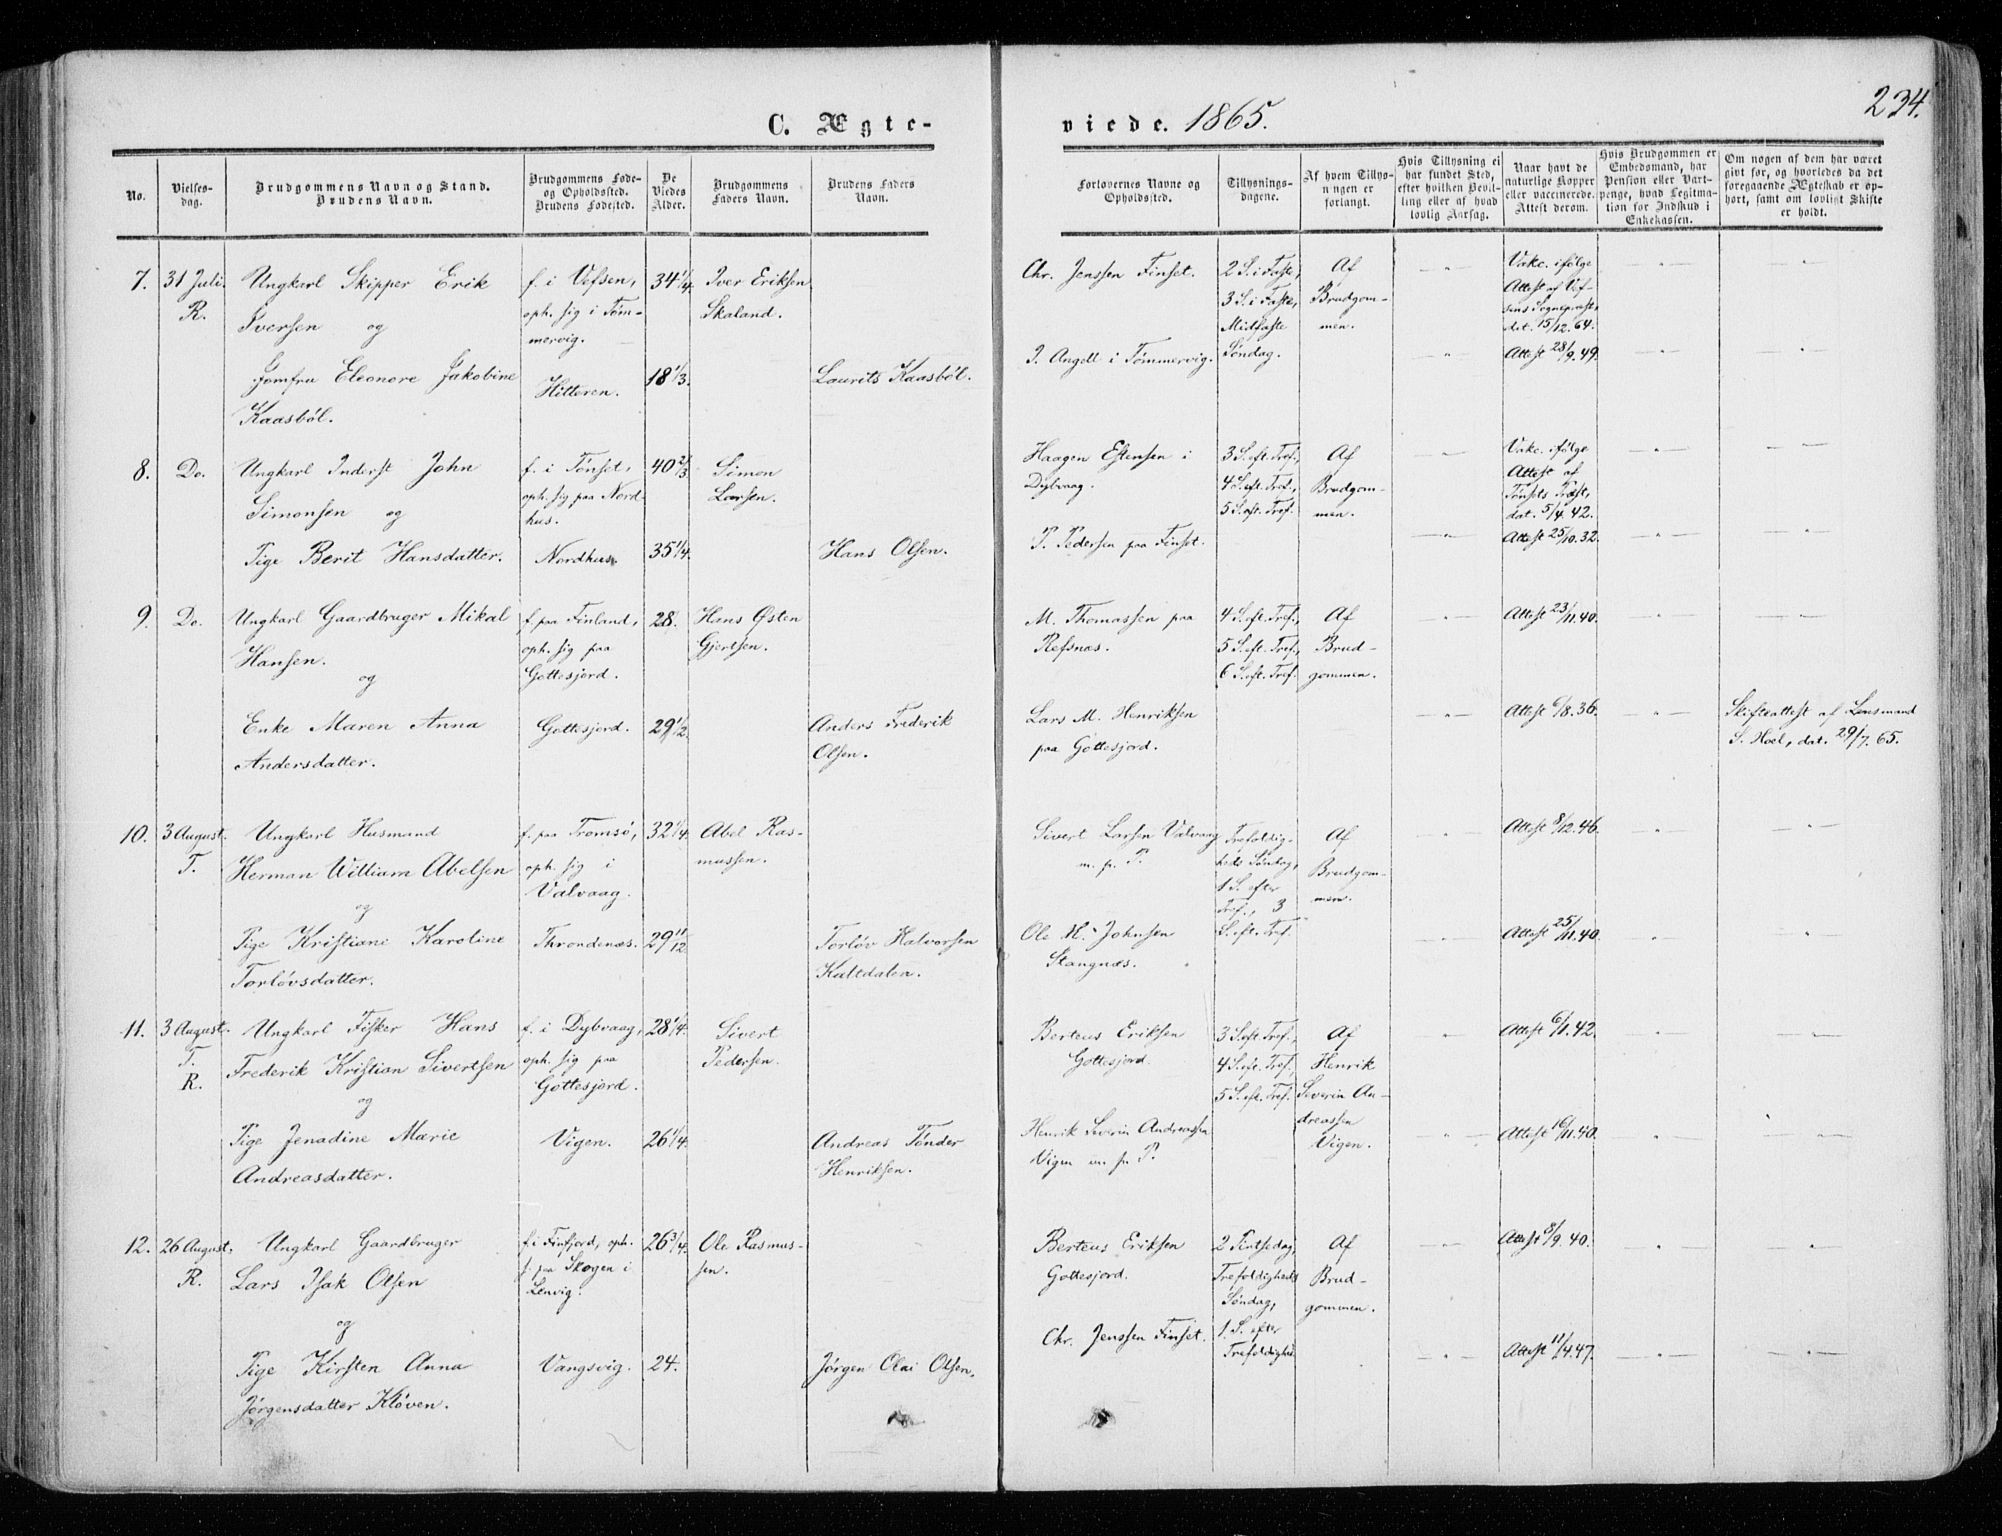 C. Ægte-
viede. 1865.
234.
No.
Vielses-
dag.
Brudgommens Navn og Stand.
Brudens Navn.
Brudgommens Føde-
og Opholdssted.
Brudens Fødested.
De
Viedes
Alder.
Brudgommens
Faders Navn.
Brudens Faders
Navn.
Forlovernes Navne og
Opholdssted.
Tillysnings-
dagene.
Af hvem Tillys-
ningen er
forlangt.
Hvis Tillysning ei
har fundet Sted,
efter hvilken Bevil-
ling eller af hvad
lovlig Aarsag.
Naar havt de
naturlige Kopper
eller vaccinerede.
Attest derom.
Hvis Brudgommen er
Embedsmand, har
Pension eller Vart-
penge, hvad Legitma-
tion for Indskud i
Enkekassen.
Om nogen af dem har været
givt før, og hvorledes da det
foregaaende Ægteskab er op-
hørt, samt om lovligt Skifte
er holdt.
7.
31 Juli.
R.
Ungkarl Skipper Erik
Iversen og
Jomfru Eleonore Jakobine
Kaasbøl.
f. i Vefsen,
oph. sig i Tøm-
mervig.
Hitteren.
34 1/4.
18 1/3.
Iver Eriksen
Skaland.
Laurits Kaasböl.
Chr. Jenssen Finset.
J. Angell i Tømmervig.
2 S. i Faste,
3 S. i Faste,
Midfaste
Søndag.
Af
Brudgom-
men.
Vakc. ifölge
Attest af Vef-
sens Sognepræst,
dat. 15/12. 64.
Attest 28/9. 49.
8.
Do.
Ungkarl Inderst John
Simonsen og
Pige Berit Hansdatter.
f. i Tönset,
oph. sig paa Nord-
hus.
Nordhus.
40 2/3
35 1/4.
Simon
Larsen.
Hans Olsen.
Haagen Estensen i
Dybvaag.
P. Pedersen paa Finset.
3 S. eft. Tref.,
4 S. eft. Tref.,
5 S. eft. Tref.
Af
Brudgom-
men.
Vakc. ifölge
Attest af
Tönsets Præst,
dat. 5/4. 42.
Attest 25/10. 32.
9.
Do.
Ungkarl Gaardbruger Mikal
Hansen.
og
Enke Maren Anna
Andersdatter.
f. paa Finland,
oph. sig paa
Gottesjord.
Gottesjord.
28.
29 1/2.
Hans Østen
Gjertsen.
Anders Frederik
Olsen.
M. Thomassen paa
Refsnæs.
Lars M. Henriksen
paa Gottesjord.
4 S. eft. Tref.,
5 S. eft. Tref.,
6 S. eft. Tref.
Af
Brud-
gommen.
Attest 23/11. 40.
Attest 6/8. 36.
Skifteattest af Lensmand
S. Hoel, dat. 29/7. 65.
10.
3 August.
T.
Ungkarl Husmand
Herman William Abelsen
og
Pige Kristiane Karoline
Torlövsdatter.
f. paa Tromsö,
oph. sig i
Valvaag.
Throndenæs.
32 1/4.
29 11/12.
Abel Ras-
mussen.
Torlöv Halvorsen
Kaltdalen.
Sivert Larsen Valvaag
m. p. P.
Ole M. Johnsen
Stangnæs.
Trefoldig-
heds Søndag,
1 S. efter
Tref., 3
S. eft. Tref.
Af
Brudgom-
men.
Attest 8/12. 46.
Attest 25/11. 40.
11.
3 August.
T.
R.
Ungkarl Fisker Hans
Frederik Kristian Sivertsen
og
Pige Jenadine Marie
Andreasdatter.
f. i Dybvaag,
oph. sig paa
Gottesjord.
Vigen.
28 1/4.
26 1/4.
Sivert
Pedersen.
Andreas Tønder
Henriksen.
Berteus Eriksen
Gottesjord.
Henrik Severin Andreassen
Vigen m. p. P.
3 S. eft. Tref.,
4 S. eft. Tref.,
5 S. eft. Tref.
Af
Henrik
Severin An-
dreassen
Vigen.
Attest 6/1. 42.
Attest 16/11. 40.
12.
26 August.
R.
Ungkarl Gaardbruger
Lars Isak Olsen
og
Pige Kirsten Anna
Jørgensdatter Kløven.
f. i Finfjord, oph.
s. paa Skogen i
Lenvig.
Vangsvig.
26 3/4.
24.
Ole Rasmus-
sen.
Jørgen Olai Olsen.
Berteus Eriksen
Gottesjord.
Chr. Jenssen Finset.
2 Pintsedag,
Trefoldigheds
Søndag,
1. S. efter
Trefoldighed.
Af
Brud-
gommen.
Attest 8/9. 40.
Attest 11/4. 47.